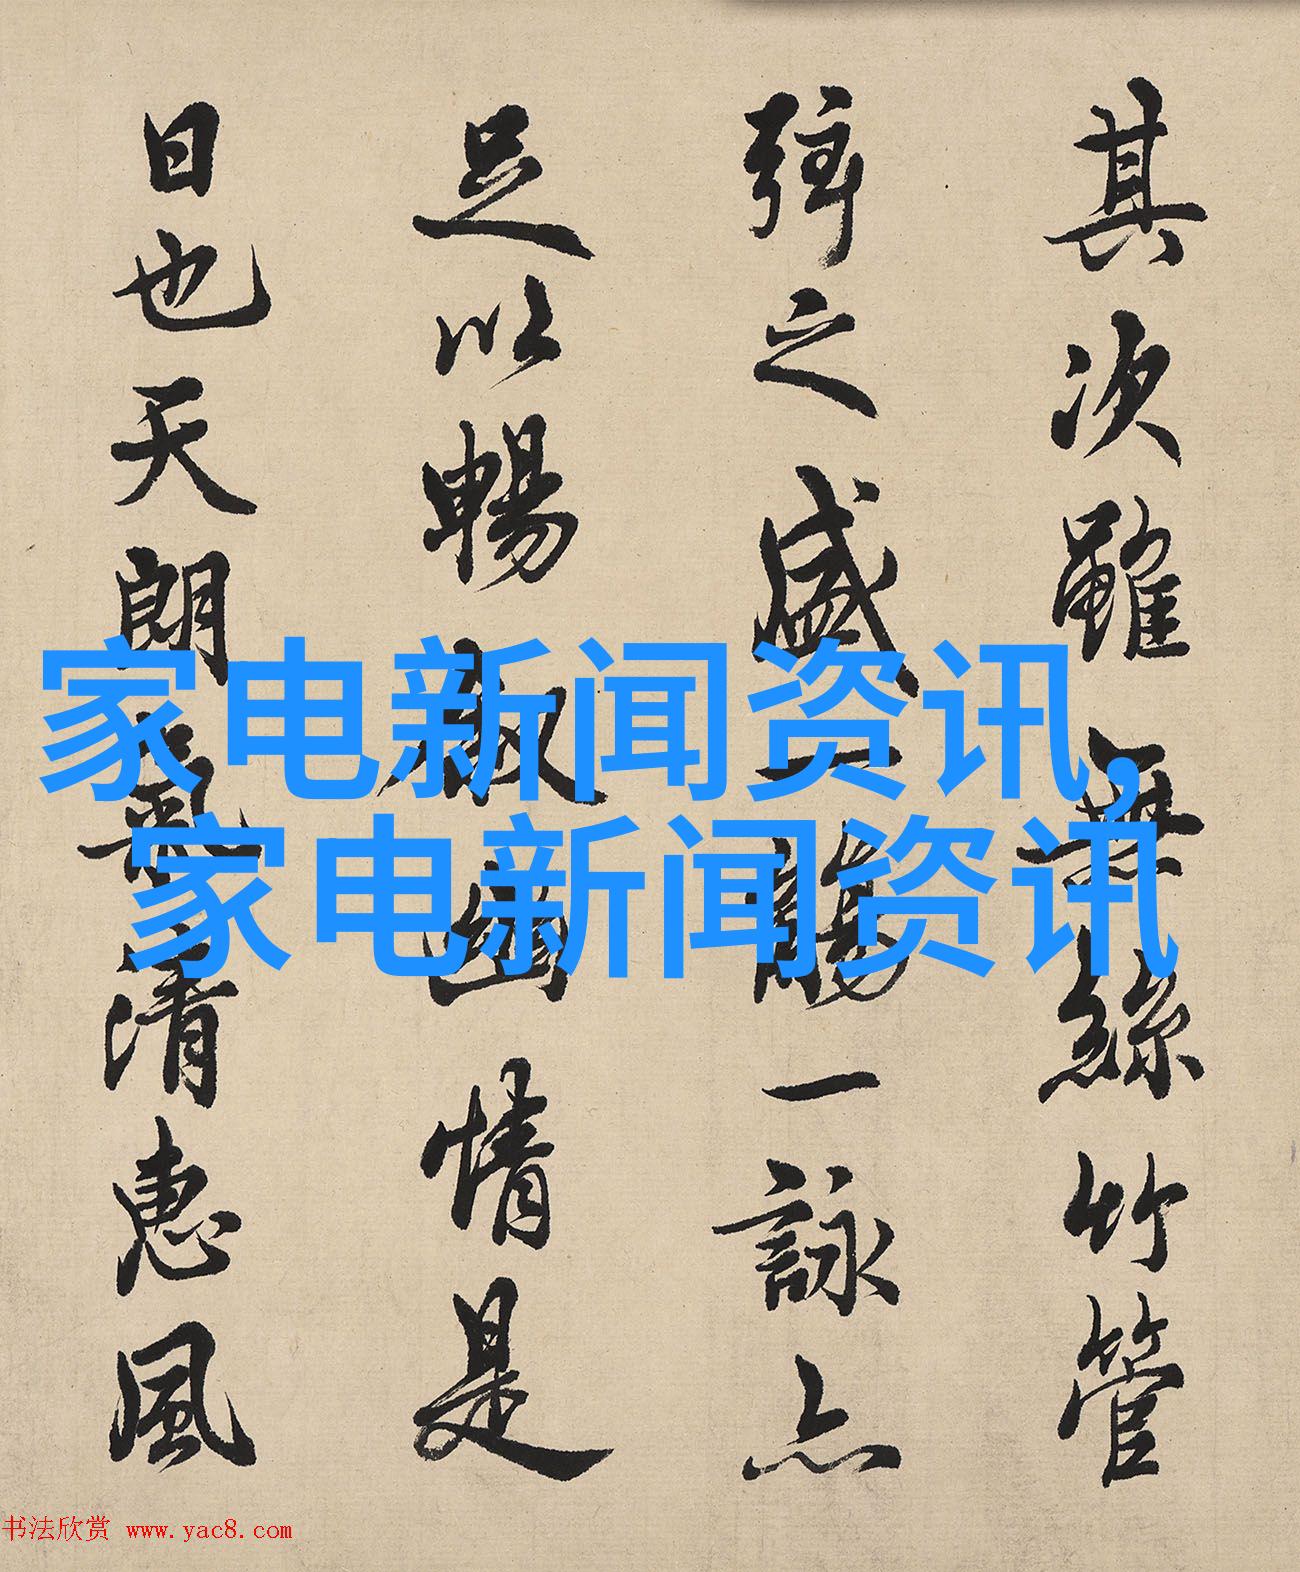 其次雖無絲竹管
弦之盛一觴一詠亦
足以暢叙幽情是
日也天朗氣清惠風
家电新闻资讯,
家电新闻资讯
书法欣赏 www.yac8.com